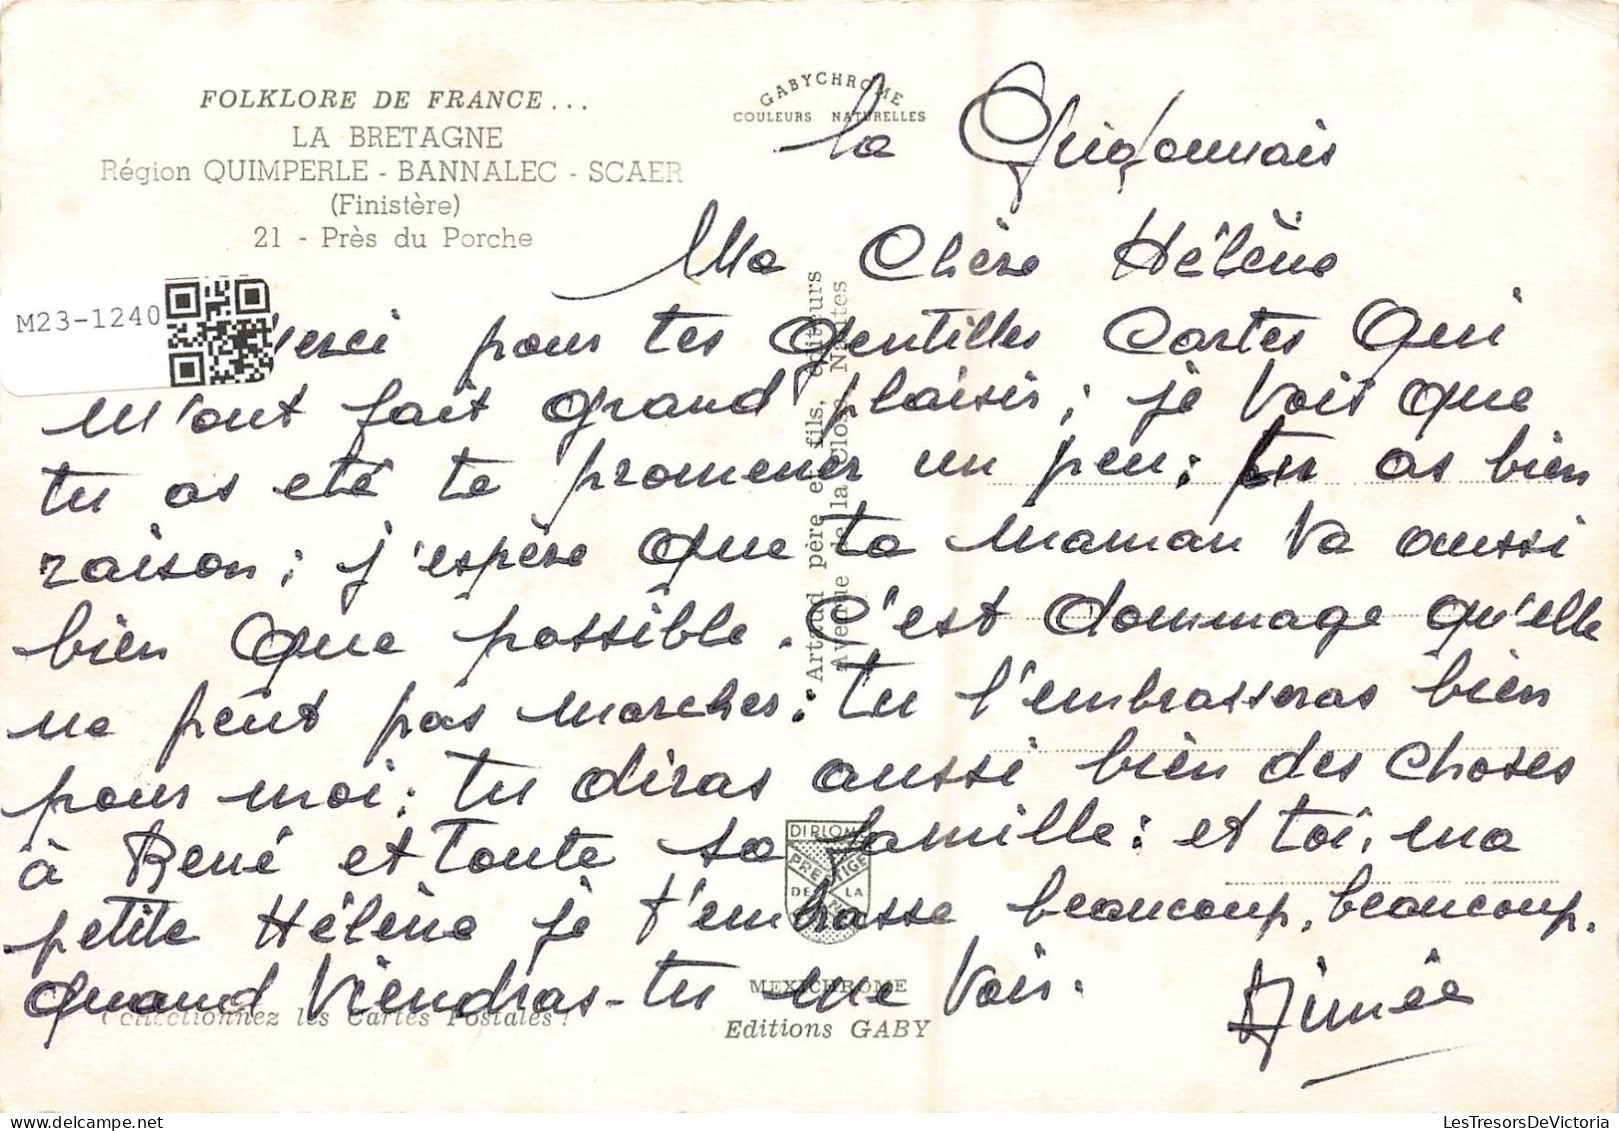 FOLKLORE DE FRANCE...
LA BRETAGNE
Région QUIMPERLE - BANNALEC - SCAER
(Finistère)
21 - Près du Porche
GABYCHROME
COULEURS NATURELLES
M23-1240
la
Ma Chère Hélène
Merci pour tes gentilles Cartes qui
m'ont fait grand plaisir; je vois que
tu as été te promener un peu: tu as bien
raison; j'espère que ta maman va aussi
bien que possible. C'est dommage qu'elle
ne peut pas marcher: tu l'embrasseras bien
pour moi; tu diras aussi bien des choses
à René et toute sa famille: et toi, ma
petite Hélène je t'embrasse beaucoup, beaucoup.
quand viendras-tu me voir.
Aimée
Artaud père et fils, éditeurs
Avenue de la Close, Nantes
DIPLOME
PRESTIGE
DE LA
MEXICHROME
Editions GABY
Collectionnez les Cartes Postales!
LesTresorsDeVictoria